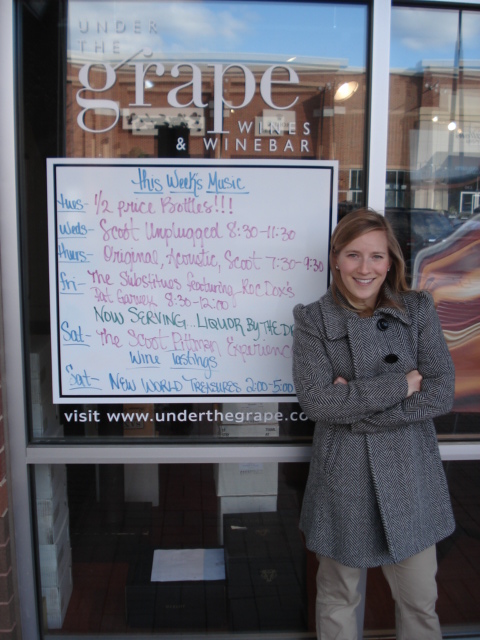 UNDER
THE
grape
WINES
& WINEBAR
This Week's Music
tues- 1/2 price Bottles!!!
Weds- Scoot Unplugged 8:30-11:30
thurs- Original, Acoustic, Scoot 7:30-9:30
fri- The Substitutes featuring Roc Dox's
Pat Garvey 8:30-12:00!
Now Serving... Liquor By The
Sat- The Scoot Pittman Experience
Wine tastings
Sat- New World Treasures 2:00-5:00
visit www.underthegrape.co